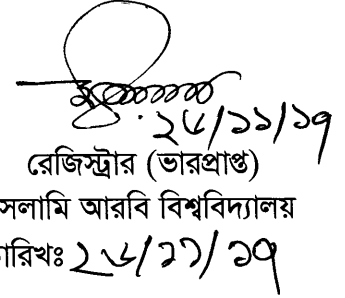 ২৬/১১/১৭
রেজিস্ট্রার (ভারপ্রাপ্ত)
সলামি আরবি বিশ্ববিদ্যালয়
ারিখঃ ২৬/১১/১৭